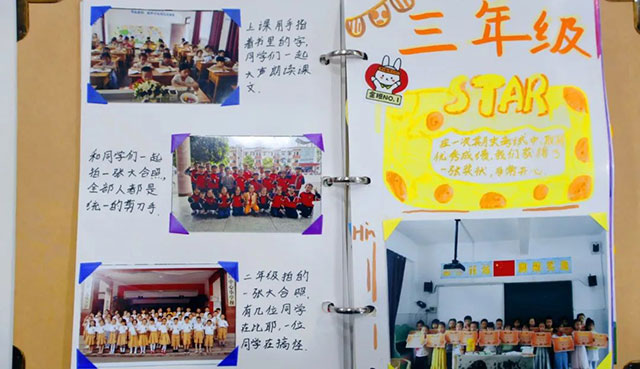 上课用手指
着书里的字,
同学们一起
大声朗读课
文.
和同学们一起
拍一张大合照,
全部人都是
统一的剪刀手.
二年级拍的
一张大合照,
有几位同学
在比耶,一位
同学在搞怪.
三年级
全班NO.1
STAR
在一次期末考试中,取得
优秀成绩,我们获得了
一张奖状,非常开心.
Hin